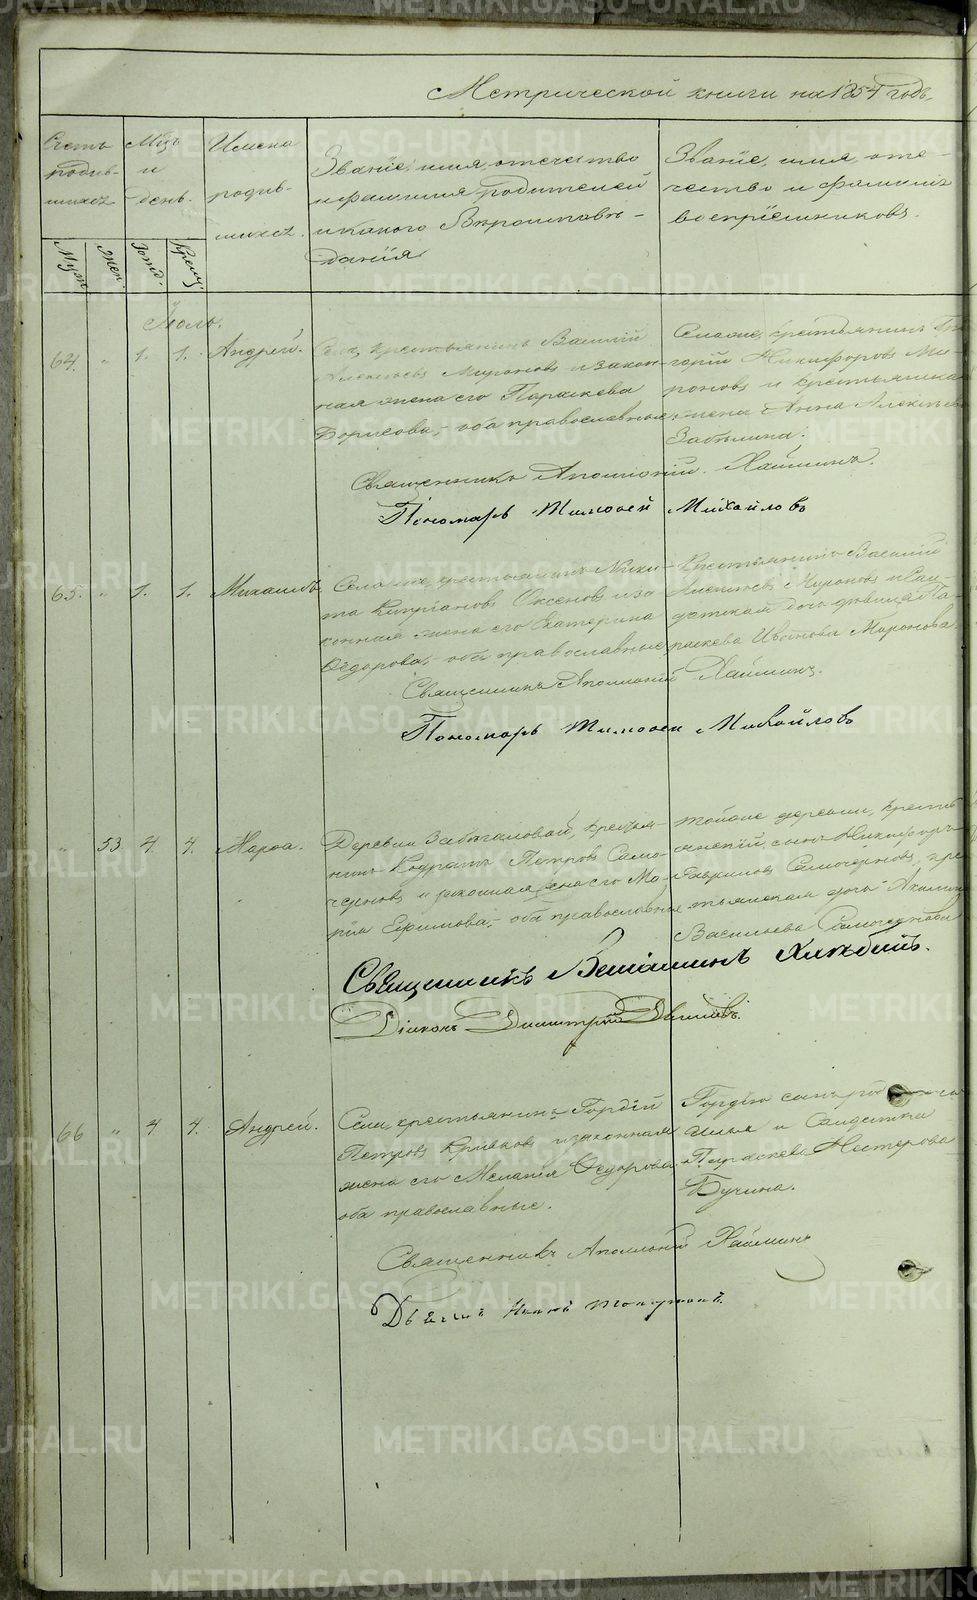 Метрической книги на 1854 годъ.
Счетъ родив-шихся
Мцъ и день.
Имена родив-шихся.
Званіе, имя, отечество
и фамилія родителей
и какого Вѣроисповѣ-
данія
Званіе, имя, оте-
чество и фамилія
воспріемниковъ.
Муж.
Жен.
Рожд.
Крещ.
Іюль.
64. " 1. 1. Андрей.
крестьянинъ Василій
Алексѣевъ Мироновъ и закон-
ная жена его Параскева
Борисова, оба православные
крестьянинъ Гри-
горій Никифоровъ Ми-
роновъ и крестьянская
жена Анна Алексѣева
Забѣлина.
Священникъ Аполлоній Хлынинъ.
Пономарь Тимоѳей Михайловъ
65. " 1. 1. Михаилъ.
Села крестьянинъ Ники-
та Кипріановъ Оксеновъ и за-
конная жена его Екатерина
Ѳедорова, оба православные
Крестьянинъ Василій
Алексѣевъ Мироновъ и сал-
датская дочь дѣвица Па-
раскева Иванова Миронова.
Священникъ Аполлоній
Пономарь Тимоѳей Михайловъ
" 53 4. 4. Марѳа.
Деревни крестья-
нинъ Кодратъ Петровъ Само-
черновъ и законная жена его Ма-
рія Ефимова, оба православные
тойже деревни, крестья-
нскій сынъ Никифоръ
Гавриловъ Самочерновъ, кре-
стьянская дочь Акилина
Васильева Самочернова
Священникъ Веніаминъ
Діаконъ Димитрій
66 " 4 4. Андрей.
Села, крестьянинъ Гордій
Петровъ Кривковъ и законная
жена его Меланія Ѳедорова
оба православные.
Гордѣя сынъ
Илья и солдатка
Параскева Нестерова
Бучина.
Священникъ Аполлоній
METRIKI.GASO-URAL.RU